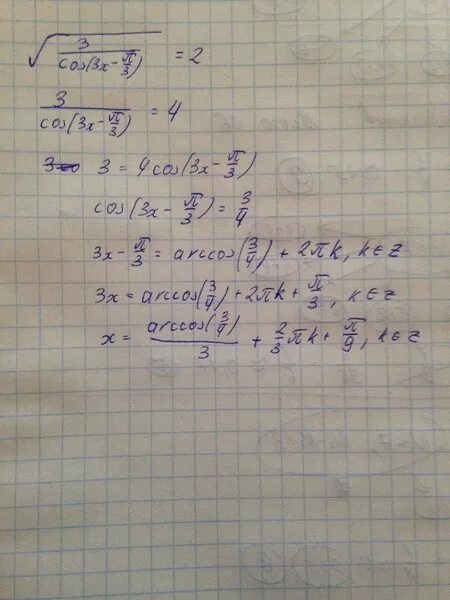 √(3/cos(3x-π/3)) = 2
3/cos(3x-π/3) = 4
3 = 4cos(3x-π/3)
cos(3x-π/3) = 3/4
3x-π/3 = arccos(3/4) + 2πk, k∈z
3x = arccos(3/4) + 2πk + π/3, k∈z
x = arccos(3/4)/3 + 2/3 πk + π/9, k∈z